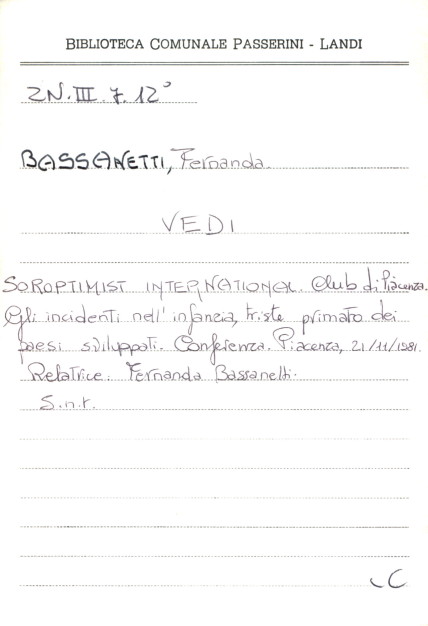 BIBLIOTECA COMUNALE PASSERINI - LANDI
2N.III.7.12°
BASSANETTI, Fernanda.
VEDI
SOROPTIMIST INTERNATIONAL. Club di Piacenza.
Gli incidenti nell'infanzia, triste primato dei
paesi sviluppati. Conferenza. Piacenza, 21/11/1981.
Relatrice: Fernanda Bassanetti.
S.n.t.